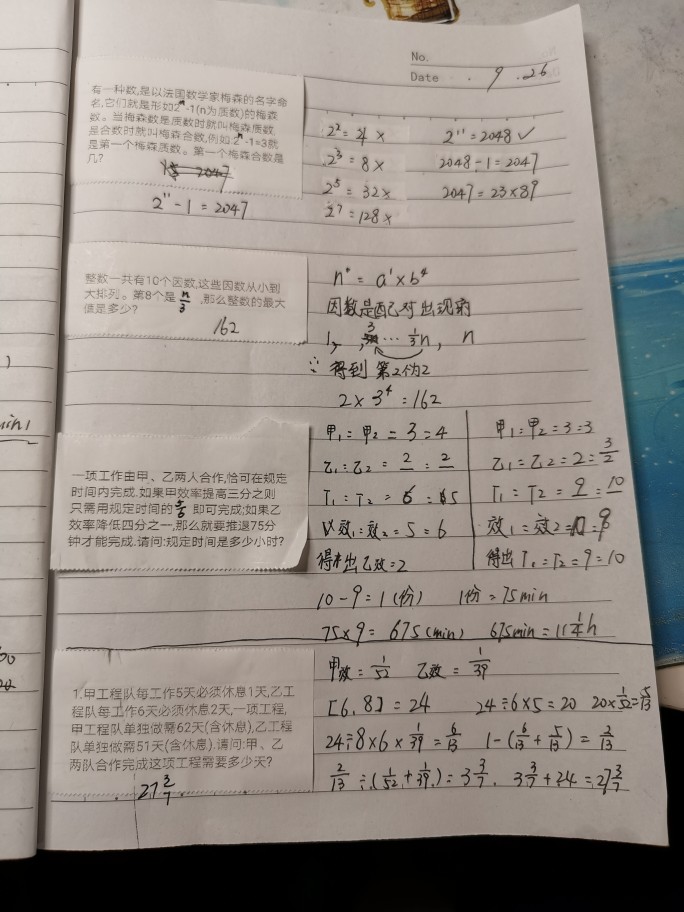 No.
Date . 9 . 26
有一种数,是以法国数学家梅森的名字命
名,它们就是形如2ⁿ-1(n为质数)的梅森
数。当梅森数是质数时就叫梅森质数,
是合数时就叫梅森合数,例如:2ⁿ-1=3就
是第一个梅森质数。第一个梅森合数是
几?
2047
2¹¹-1=2047
2²=4 ×
2³=8 ×
2⁵=32 ×
2⁷=128 ×
2¹¹=2048 ✓
2048-1=2047
2047=23×89
整数一共有10个因数,这些因数从小到
大排列。第8个是 n/3 ,那么整数的最大
值是多少?
162
n*=a¹×b⁴
因数是配对出现的
1, , 3 … 1/3n, n
∴得到 第2个为2
2×3⁴=162
一项工作由甲、乙两人合作,恰可在规定
时间内完成.如果甲效率提高三分之则
只需用规定时间的5/6即可完成;如果乙
效率降低四分之一,那么就要推迟75分
钟才能完成.请问:规定时间是多少小时?
甲₁:甲₂=3:4
乙₁:乙₂=2:2
T₁:T₂=6:5
效₁:效₂=5:6
得出乙效=2
甲₁:甲₂=3:3
乙₁:乙₂=2:3/2
T₁:T₂=9:10
效₁:效₂=10:9
得出T₁:T₂=9:10
10-9=1(份) 1份=75min
75×9=675(min) 675min=11 1/4h
1.甲工程队每工作5天必须休息1天,乙工
程队每工作6天必须休息2天,一项工程,
甲工程队单独做需62天(含休息),乙工程
队单独做需51天(含休息).请问:甲、乙
两队合作完成这项工程需要多少天?
27 3/7
甲效=1/52 乙效=1/39
[6,8]=24 24÷6×5=20 20×1/52=5/13
24÷8×6×1/39=6/13 1-(6/13+5/13)=2/13
2/13÷(1/52+1/39)=3 3/7. 3 3/7+24=27 3/7